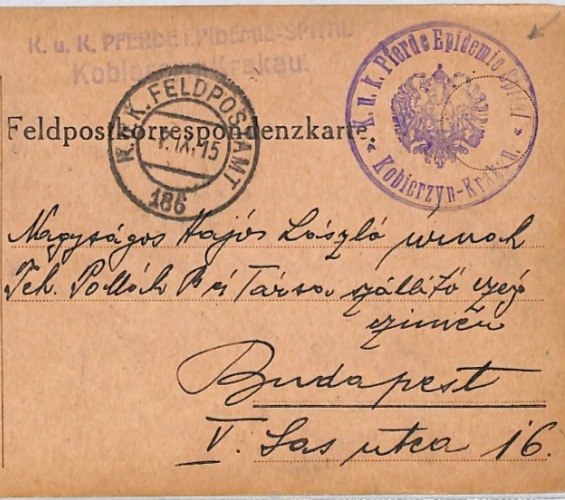 K. u. K. PFERDE EPIDEMIE-SPITAL
Kobierzyn-Krakau.
K. u. k. Pferde Epidemie Spital
Kobierzyn-Krakau.
K.u.K. FELDPOSTAMT
IX. 15
186
Feldpostkorrespondenzkarte.
Nagyságos Hajós László urnak
Teh. Pollák és Társa szállító czég
czimén
Budapest
V. Sas utca 16.